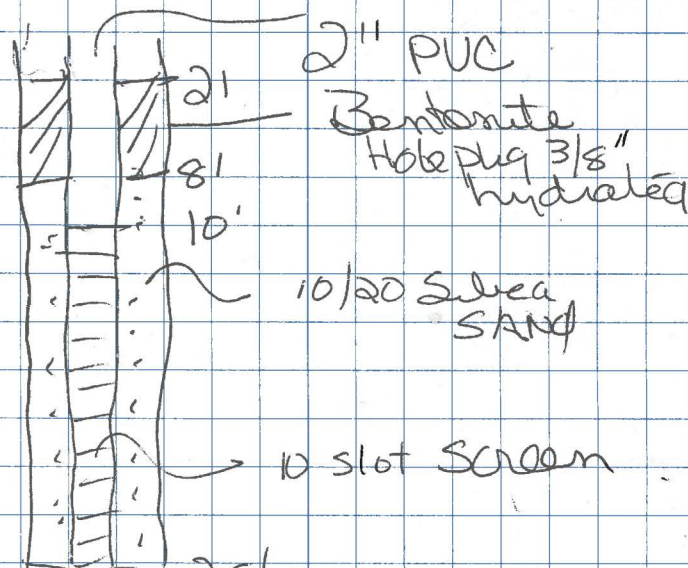 2" PVC
2'
Bentonite
Hole plug 3/8"
hydrated
8'
10'
10/20 Silica
SAND
10 slot Screen